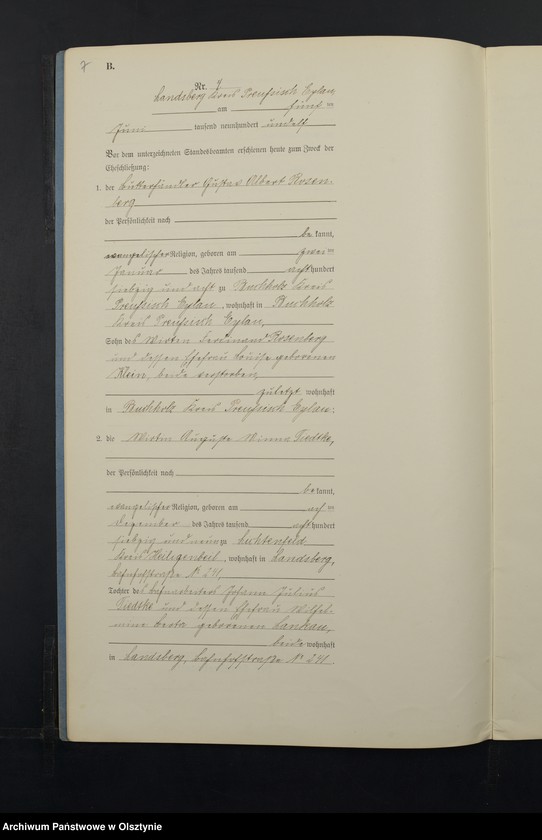 7
B.
Nr. 7
Landsberg Kreis Preußisch Eylau,
am fünf ten
Juni tausend neunhundert und elf
Vor dem unterzeichneten Standesbeamten erschienen heute zum Zweck der
Eheschließung:
1. der Gustav Albert Rosen-
berg
der Persönlichkeit nach
be kannt,
evangelischer Religion, geboren am zwei ten
Januar des Jahres tausend acht hundert
siebzig und acht zu Buchholz Kreis
Preußisch Eylau, wohnhaft in Buchholz
Kreis Preußisch Eylau,
Sohn des Ferdinand Rosenberg
und dessen Ehefrau Louise geborenen
Klein, beide verstorben,
zuletzt wohnhaft
in Buchholz Kreis Preußisch Eylau.
2. die Auguste Minna Tiedtke,
der Persönlichkeit nach
be kannt,
evangelischer Religion, geboren am ten
Dezember des Jahres tausend acht hundert
siebzig und neun zu Lichtenfeld
Kreis Heiligenbeil, wohnhaft in Landsberg,
Bahnhofstraße Nº 241,
Tochter des Bahnarbeiters Johann Julius
Tiedtke und dessen Ehefrau Wilhel-
mine Berta geborenen Lankau,
beide wohnhaft
in Landsberg, Bahnhofstraße Nº 241.
Archiwum Państwowe w Olsztynie